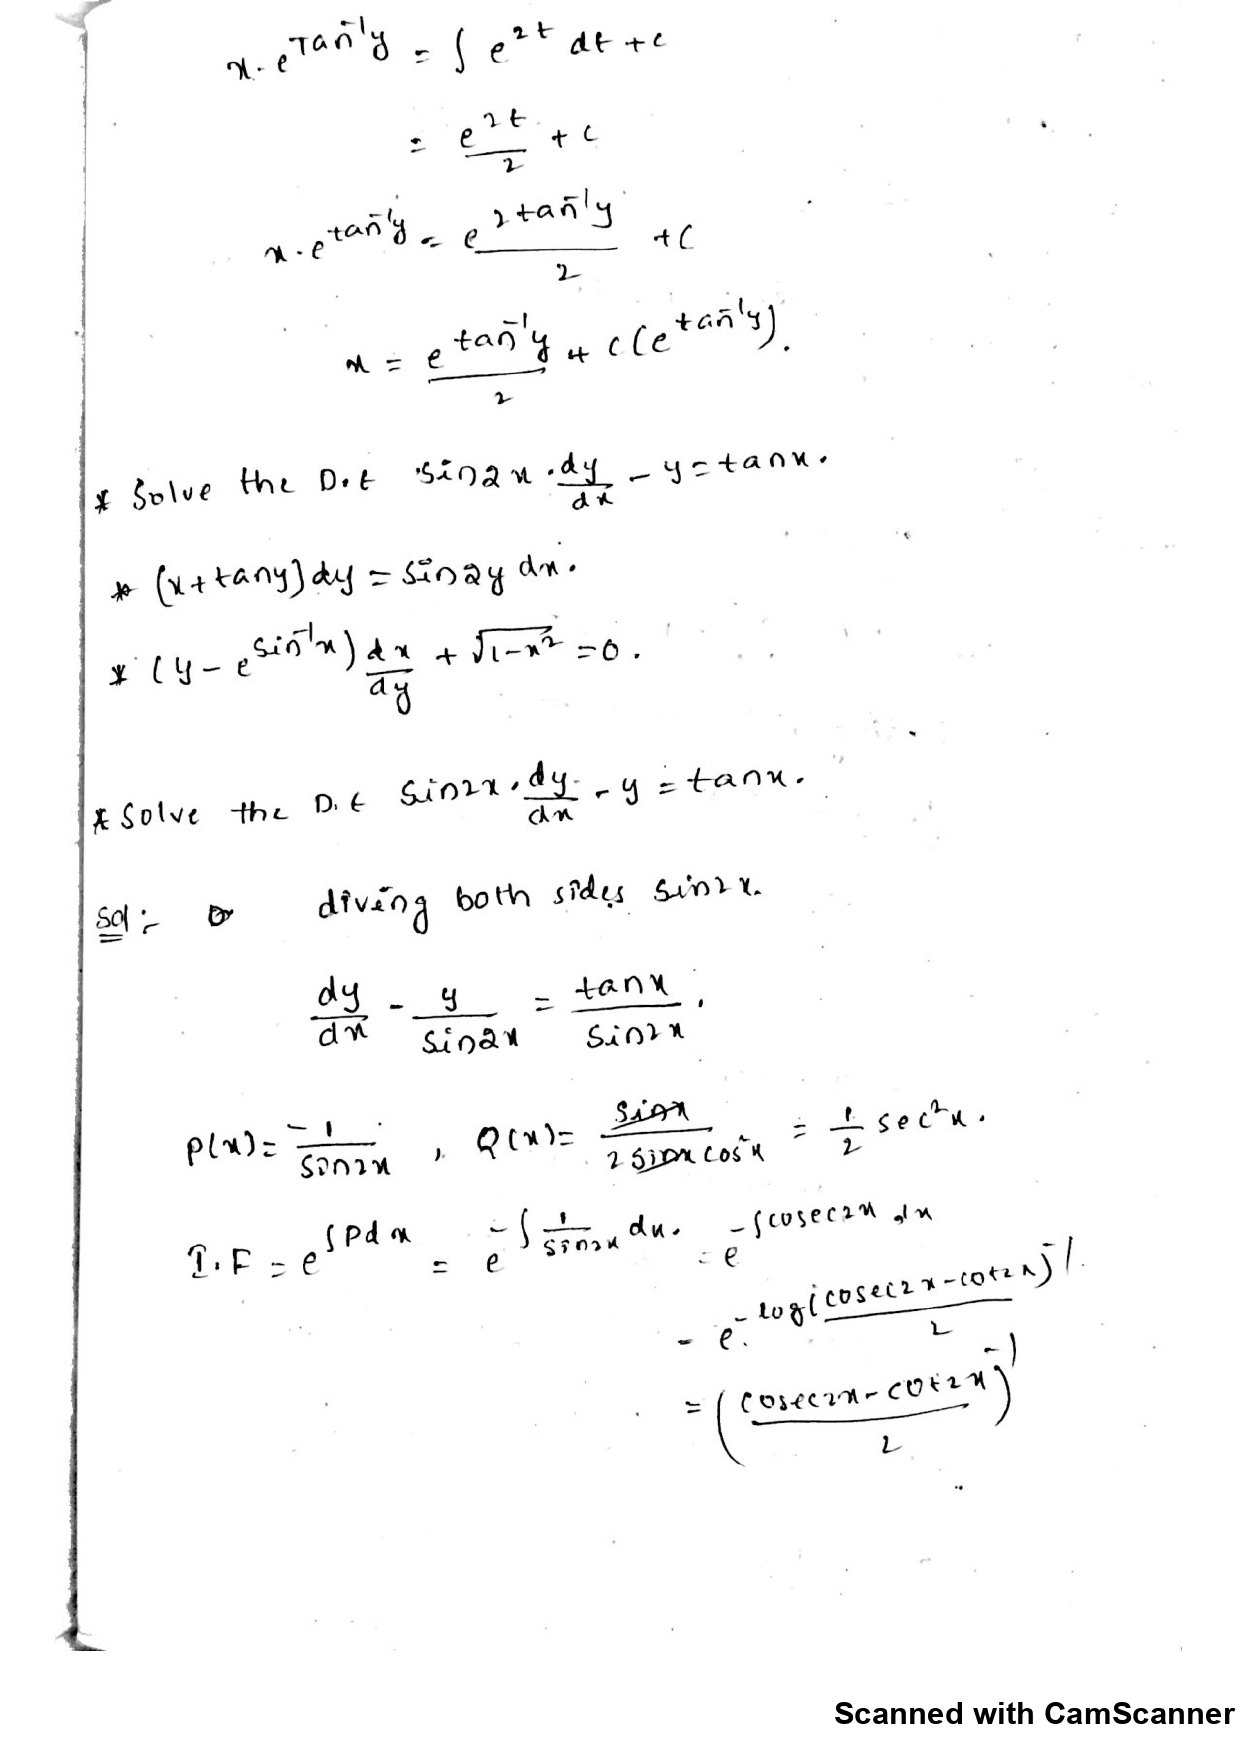 x. e^Tan⁻¹y = ∫ e^2t dt + c
= e^2t/2 + c
x. e^tan⁻¹y = e^2tan⁻¹y/2 + c
x = e^tan⁻¹y/2 + c(e^tan⁻¹y).
* Solve the D.E sin2x . dy/dx - y = tanx.
* (x + tany) dy = sin2y dx.
* (y - e^sin⁻¹x) dx/dy + √1-x² = 0.
* Solve the D.E sin2x . dy/dx - y = tanx.
Sol :- diving both sides sin2x.
dy/dx - y/sin2x = tanx/sin2x.
P(x) = -1/sin2x , Q(x) = sinx/2 sinx cos²x = 1/2 sec²x.
I.F = e^∫Pdx = e^-∫ 1/sin2x dx. = e^-∫cosec2x dx
= e^- log(cosec2x - cot2x)⁻¹/2
= (cosec2x - cot2x/2)⁻¹
Scanned with CamScanner